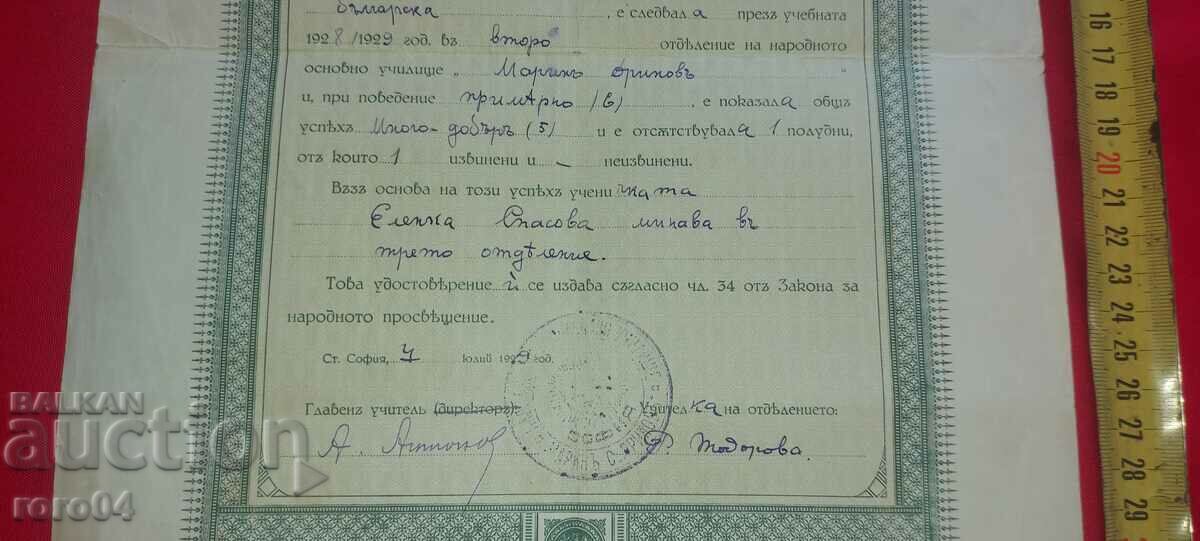 българска , е следвала презъ учебната
1928/1929 год. въ второ отдѣление на народното
основно училище „ Маринъ Дриновъ "
и, при поведение примѣрно (6) , е показала общъ
успѣхъ Много-добъръ (5) и е отсѫтствувала 1 полудни,
отъ които 1 извинени и - неизвинени.
Възъ основа на този успѣхъ учени ката
Еленка Спасова минава въ
трето отдѣление.
Това удостовѣрение й се издава съгласно чл. 34 отъ Закона за
народното просвѣщение.
Ст. София, 4 Юлий 1929 год.
Главенъ учитель (директоръ): Учителка на отдѣлението:
А. Тодорова.
BALKAN
auction
roro04
16
17
18
19
20
21
22
23
24
25
26
27
28
29